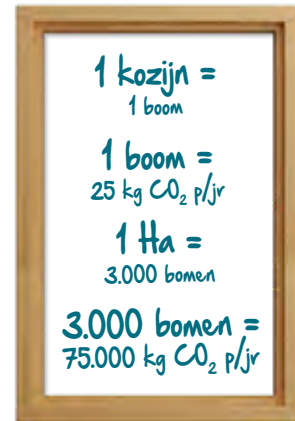 1 kozijn =
1 boom
1 boom =
25 kg CO₂ p/jr
1 Ha =
3.000 bomen
3.000 bomen =
75.000 kg CO₂ p/jr